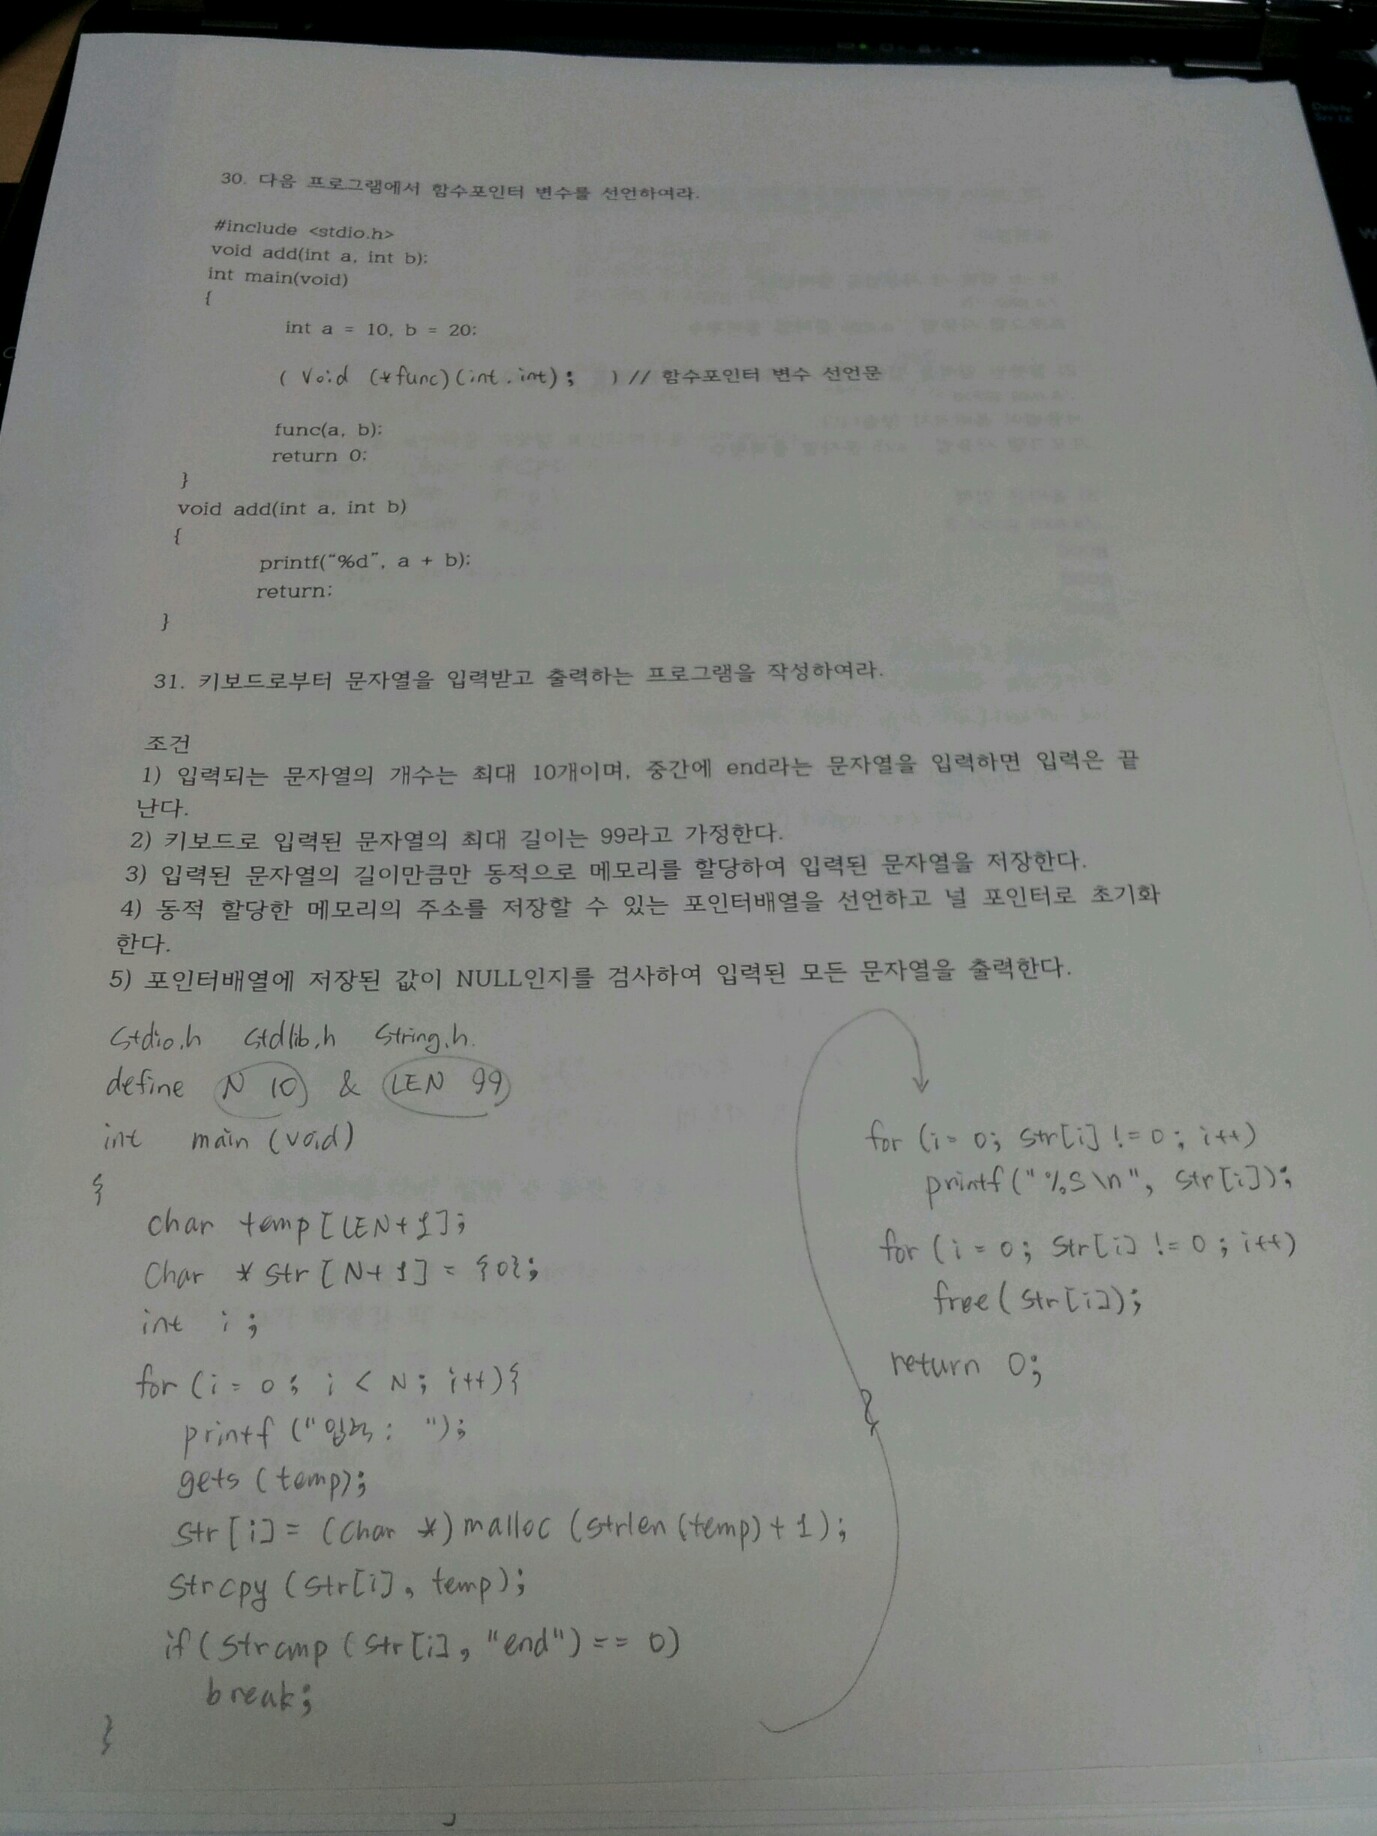 30. 다음 프로그램에서 함수포인터 변수를 선언하여라.
#include <stdio.h>
void add(int a, int b);
int main(void)
{
int a = 10, b = 20;
( void (*func)(int, int); ) // 함수포인터 변수 선언문
func(a, b);
return 0;
}
void add(int a, int b)
{
printf("%d", a + b);
return;
}
31. 키보드로부터 문자열을 입력받고 출력하는 프로그램을 작성하여라.
조건
1) 입력되는 문자열의 개수는 최대 10개이며, 중간에 end라는 문자열을 입력하면 입력은 끝
난다.
2) 키보드로 입력된 문자열의 최대 길이는 99라고 가정한다.
3) 입력된 문자열의 길이만큼만 동적으로 메모리를 할당하여 입력된 문자열을 저장한다.
4) 동적 할당한 메모리의 주소를 저장할 수 있는 포인터배열을 선언하고 널 포인터로 초기화
한다.
5) 포인터배열에 저장된 값이 NULL인지를 검사하여 입력된 모든 문자열을 출력한다.
stdio.h stdlib.h string.h.
define N 10 & LEN 99
int main (void)
{
char temp[LEN+1];
char *str[N+1] = {0};
int i;
for (i = 0; i < N; i++){
printf ("입력: ");
gets (temp);
str[i] = (char *)malloc (strlen(temp)+1);
strcpy (str[i], temp);
if (strcmp (str[i], "end") == 0)
break;
}
for (i = 0; str[i] != 0; i++)
printf("%s\n", str[i]);
for (i = 0; str[i] != 0; i++)
free(str[i]);
return 0;
}